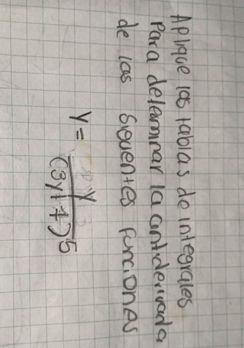 Aplique las tablas de integrales
Para determinar la antiderivada
de las siguentes funciones
y = y / (3y+7)^5